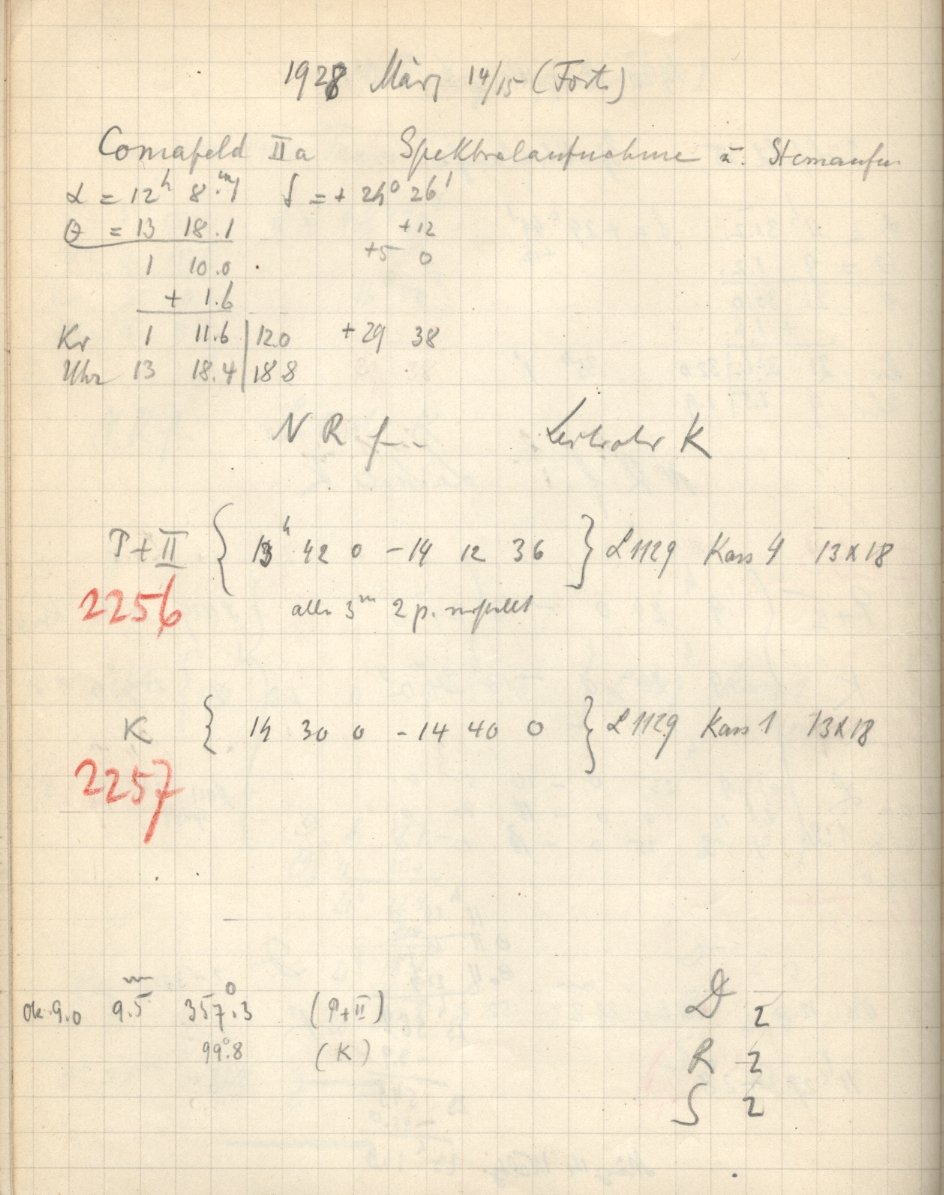 1928 März 14/15 (Forts)
Comafeld IIa Spektralaufnahme u. Sternaufn
α = 12h 8.m1 δ = + 24° 26'
θ = 13 18.1 +12
1 10.0 +5 0
+ 1.6
Kr 1 11.6 | 12.0 +29 38
Uhr 13 18.4 | 18.8
N R f. Leitrohr K
P+II { 13h 42 0 - 14 12 36 } L1129 Kass 4 13x18
2256 alle 3m 2 p.
K { 14 30 0 - 14 40 0 } L1129 Kass 1 13x18
2257
Ok 9.0 9.m5 357.°3 (P+II) D 2
99.°8 (K) R 2
S 2